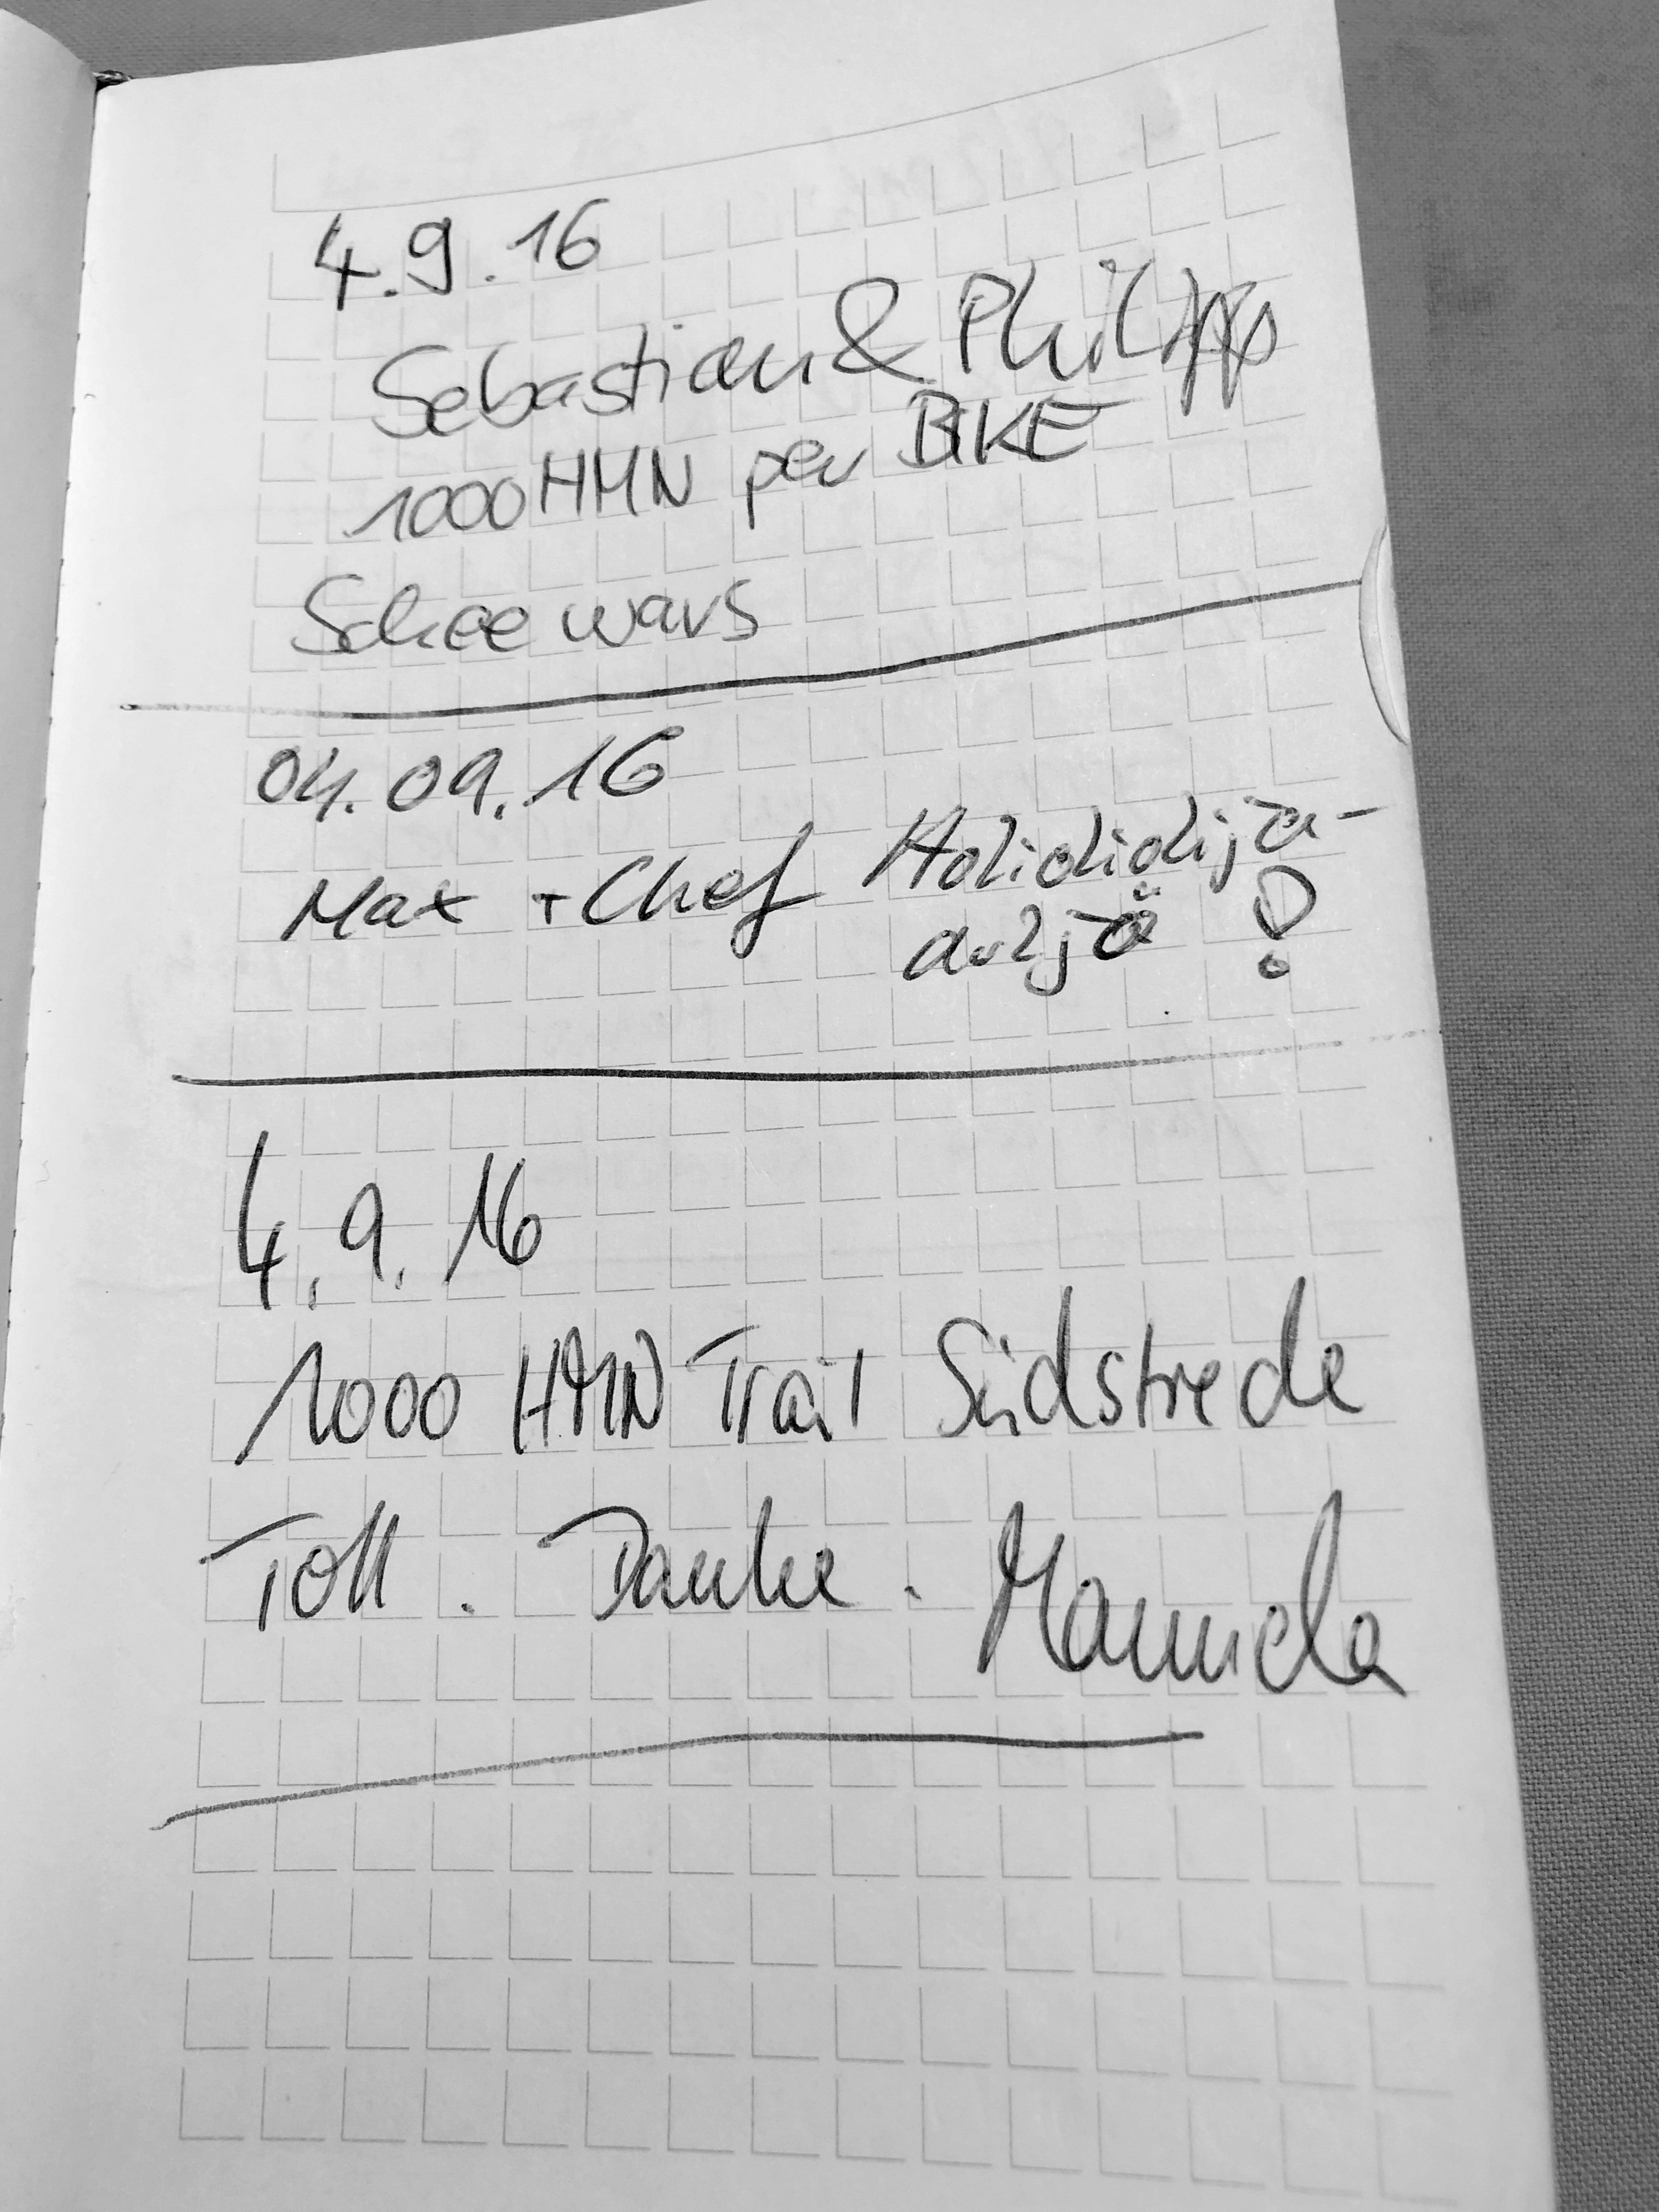 4.9.16
Sebastian & Philipp
1000 HMN per BIKE
Schee wars
04.09.16
Max + Chef Holidiodija-
!
4.9.16
1000 HMN Trail Südstrecke
Toll. Danke. Manuela